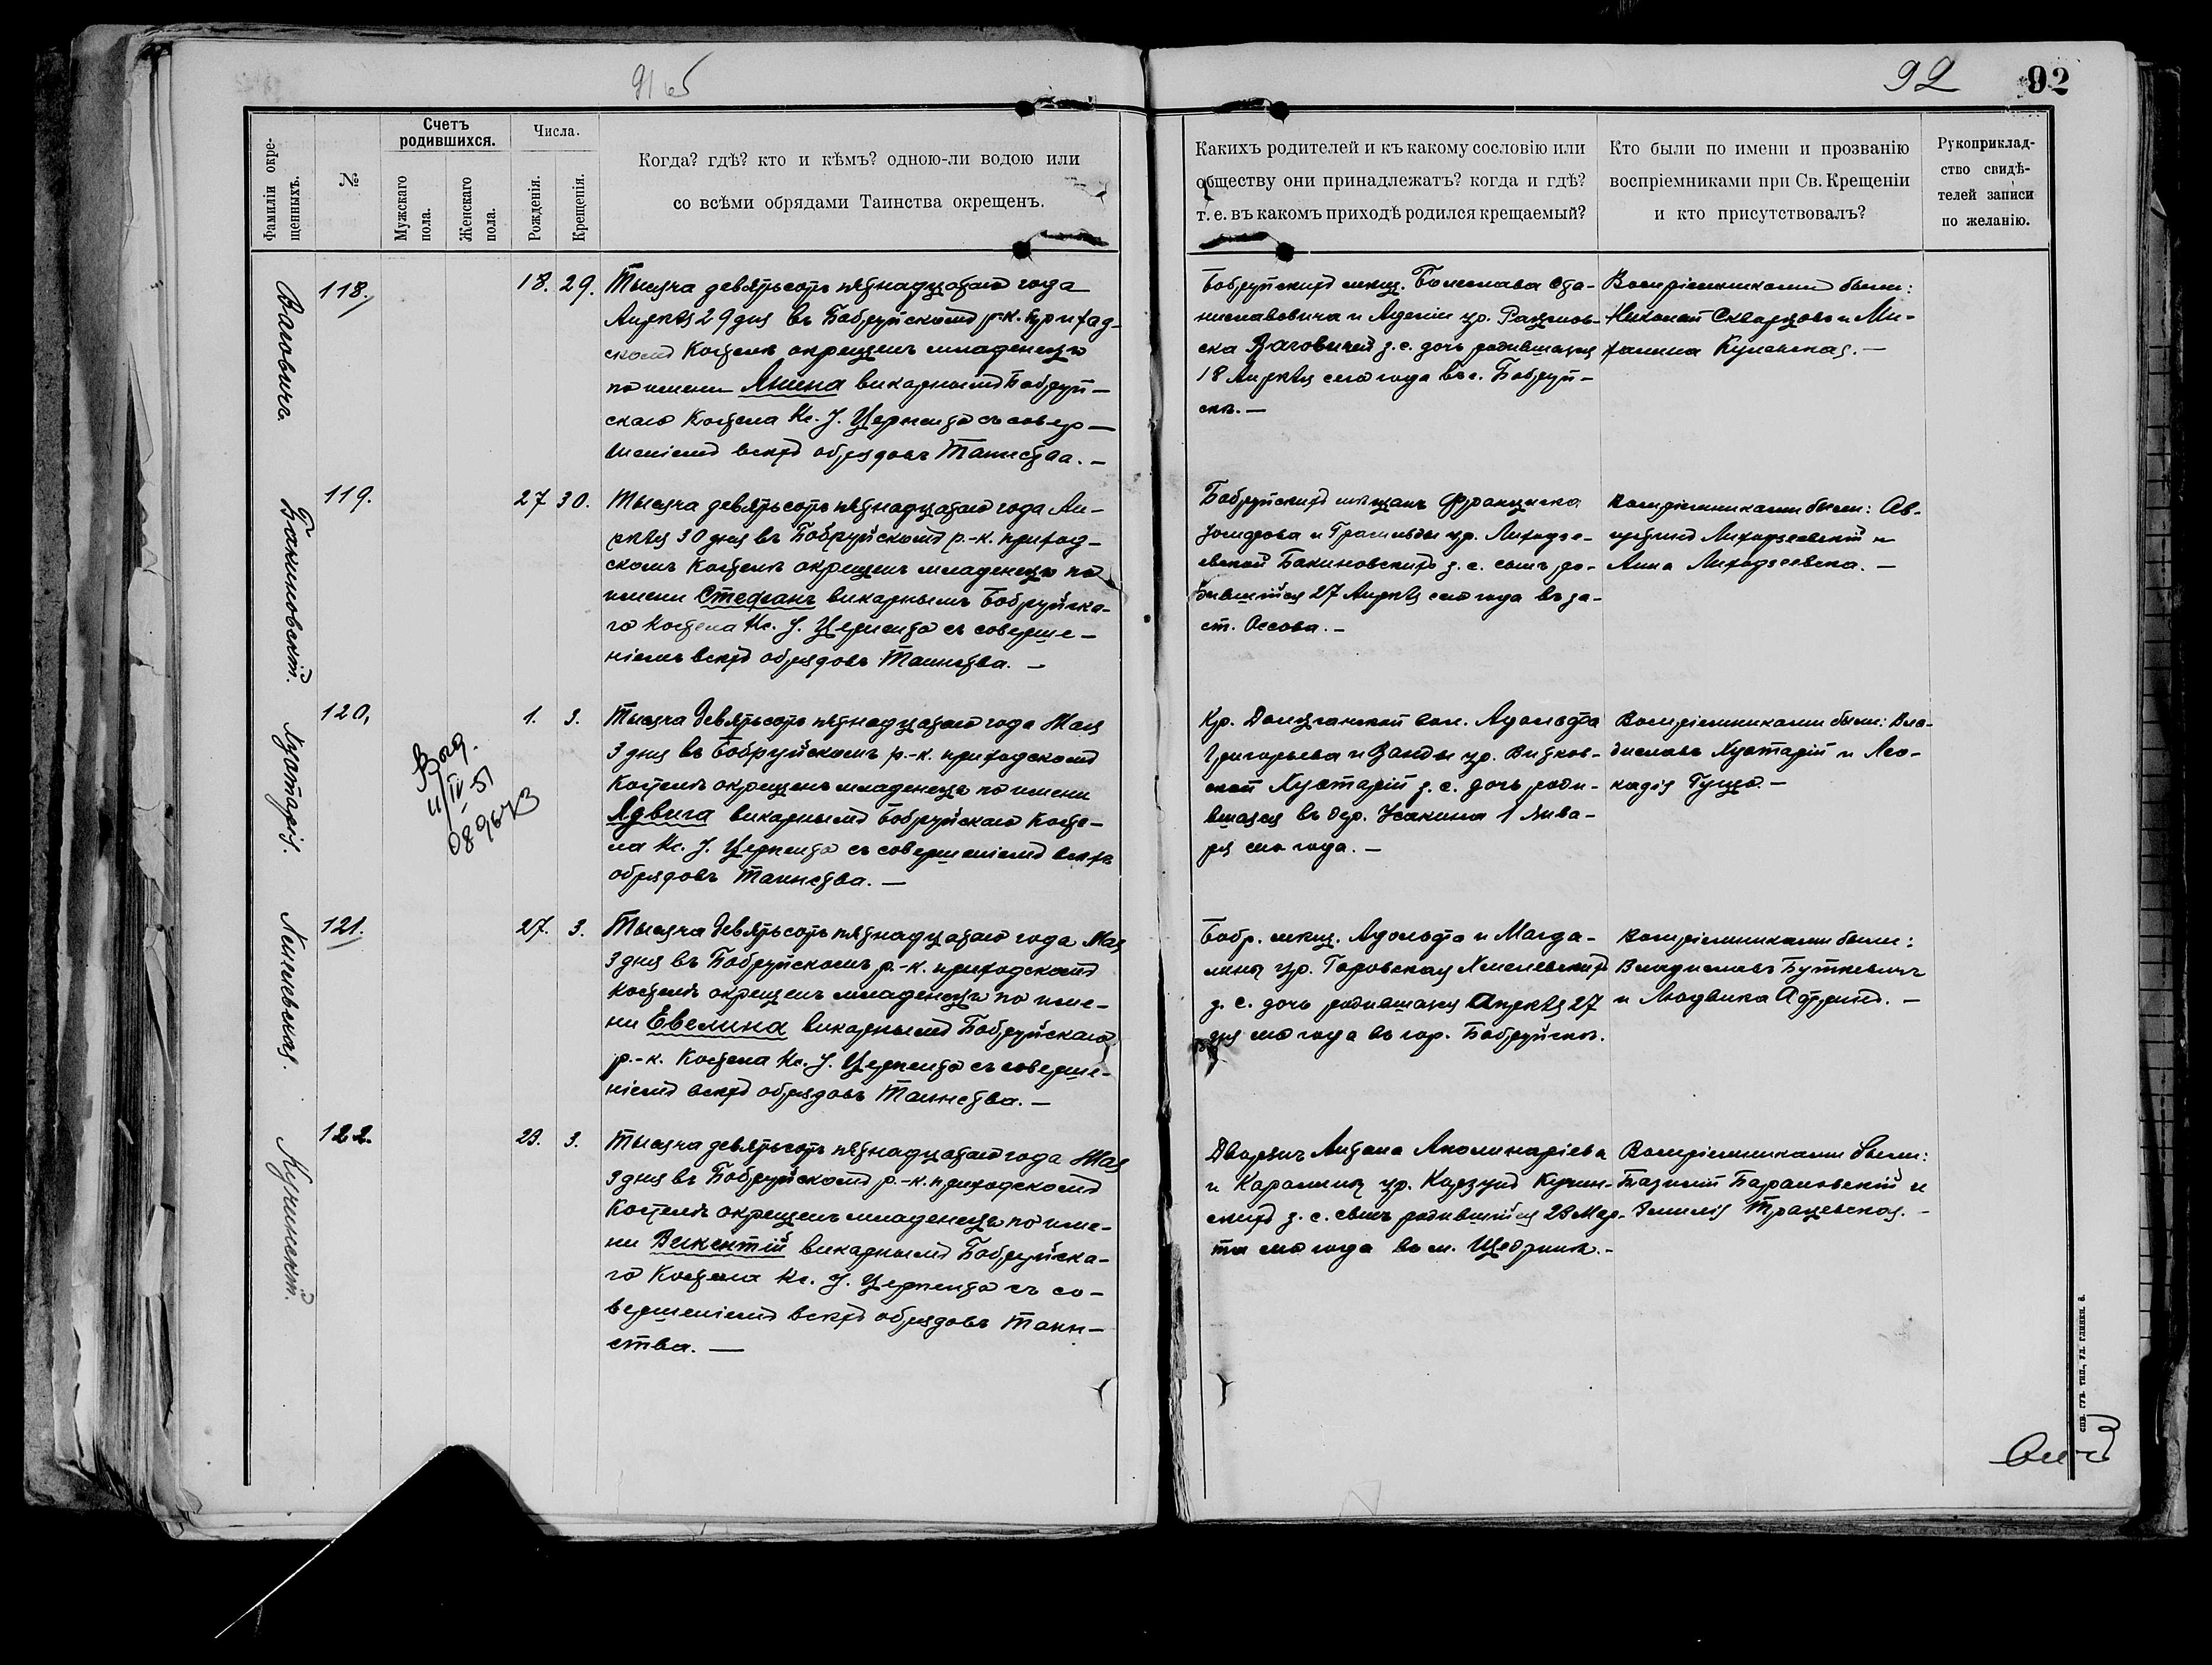 91 об
92
92
Фамиліи окре-
щенныхъ.
№
Счетъ
родившихся.
Мужскаго
пола.
Женскаго
пола.
Числа.
Рожденія.
Крещенія.
Когда? гдѣ? кто и кѣмъ? одною-ли водою или
со всѣми обрядами Таинства окрещенъ.
Какихъ родителей и къ какому сословію или
обществу они принадлежатъ? когда и гдѣ?
т. е. въ какомъ приходѣ родился крещаемый?
Кто были по имени и прозванію
воспріемниками при Св. Крещеніи
и кто присутствовалъ?
Рукоприклад-
ство свидѣ-
телей записи
по желанію.
Ваговичъ.
118.
18. 29.
Тысяча девятьсотъ пятнадцатаго года
Апрѣля 29 дня въ Бобруйскомъ р-к. приход-
скомъ Костелѣ окрещенъ младенецъ
по имени Янина викарнымъ Бобруй-
скаго Костела Кс. І. Цермента съ совер-
шеніемъ всѣхъ обрядовъ Таинства. —
Бобруйскихъ мѣщ. Болеслава Ста-
ниславовича и Аделіи ур. Рацинов-
ска Ваговичей з. с. дочь родившаяся
18 Апрѣля сего года въ г. Бобруй-
скѣ. —
Воспріемниками были:
Николай Скварцовъ и Ми-
халина Кулевская. —
Бакиновскій.
119.
27 30.
Тысяча девятьсотъ пятнадцатаго года Ап-
рѣля 30 дня въ Бобруйскомъ р.-к. приход-
скомъ Костелѣ окрещенъ младенецъ по
имени Стефанъ викарнымъ Бобруйска-
го Костела Кс. І. Цермента съ соверше-
ніемъ всѣхъ обрядовъ Таинства. —
Бобруйскихъ мѣщанъ Франциска
Іосифова и Гранильды ур. Лиходзе-
евской Бакиновскихъ з. с. сынъ ро-
дившійся 27 Апрѣля сего года въ за-
ст. Оссова. —
Воспріемниками были: Ав-
густинъ Лиходзеевскій и
Анна Лиходзеевска. —
Хутарій.
120.
Выд.
11/IV-51
08967
1. 3.
Тысяча девятьсотъ пятнадцатаго года Мая
3 дня въ Бобруйскомъ р.-к. приходскомъ
Костелѣ окрещенъ младенецъ по имени
Ядвига викарнымъ Бобруйскаго Косте-
ла Кс. І. Цермента съ совершеніемъ всѣхъ
обрядовъ Таинства. —
Кр. вол. Адольфа
Григорьева и Ванды ур. Витков-
ской Хутарій з. с. дочь роди-
вшаяся въ дер. Усакина 1 Янва-
ря сего года. —
Воспріемниками были: Вла-
диславъ Хутарій и Лео-
кадія Гуща. —
Хмелевская.
121.
27. 3.
Тысяча девятьсотъ пятнадцатаго года Мая
3 дня въ Бобруйскомъ р.-к. приходскомъ
Костелѣ окрещенъ младенецъ по име-
ни Евелина викарнымъ Бобруйскаго
р.-к. Костела Кс. І. Цермента съ соверше-
ніемъ всѣхъ обрядовъ Таинства. —
Бобр. мѣщ. Адольфа и Магда-
лины ур. Горовская Хмелевскихъ
з. с. дочь родившаяся Апрѣля 27
дня сего года въ гор. Бобруйскѣ.
Воспріемниками были:
Владиславъ Буткевичъ
и Людвика —
Кучинскій.
122.
23. 3.
Тысяча девятьсотъ пятнадцатаго года Мая
3 дня въ Бобруйскомъ р.-к. приходскомъ
Костелѣ окрещенъ младенецъ по име-
ни Викентій викарнымъ Бобруйска-
го Костела Кс. І. Цермента съ со-
вершеніемъ всѣхъ обрядовъ Таин-
ства. —
Дворянъ Антона Аполинаріева
и Каролины ур. Кучин-
скихъ з. с. сынъ родившійся 23 Мар-
та сего года въ м. Щедринѣ. —
Воспріемниками были:
Базилій Барановскій и
Эмилія Трацевская. —
спв. губ. тип., ул. глинки, 6.